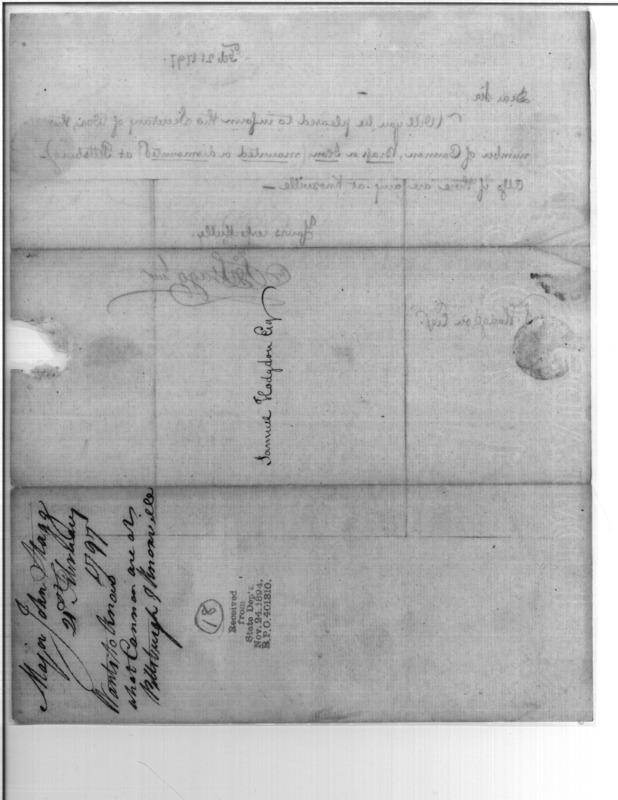 Feb 21 1797.
Dear Sir
Will you be pleased to inform the Secretary of War, the
number of Cannon, Brass & Iron, mounted & dismounted at Pittsburg
Also if there are any at Knoxville—
Yours respectfully
Jno Stagg Junr
S. Hodgdon Esqr
Samuel Hodgdon Esq
Major John Stagg
21st February
1797
Wants to know
what Cannon are at
Pittsburgh & Knoxville
18
Received
from
State Dep't.
Nov. 24. 1894.
R.P.O. 401310.